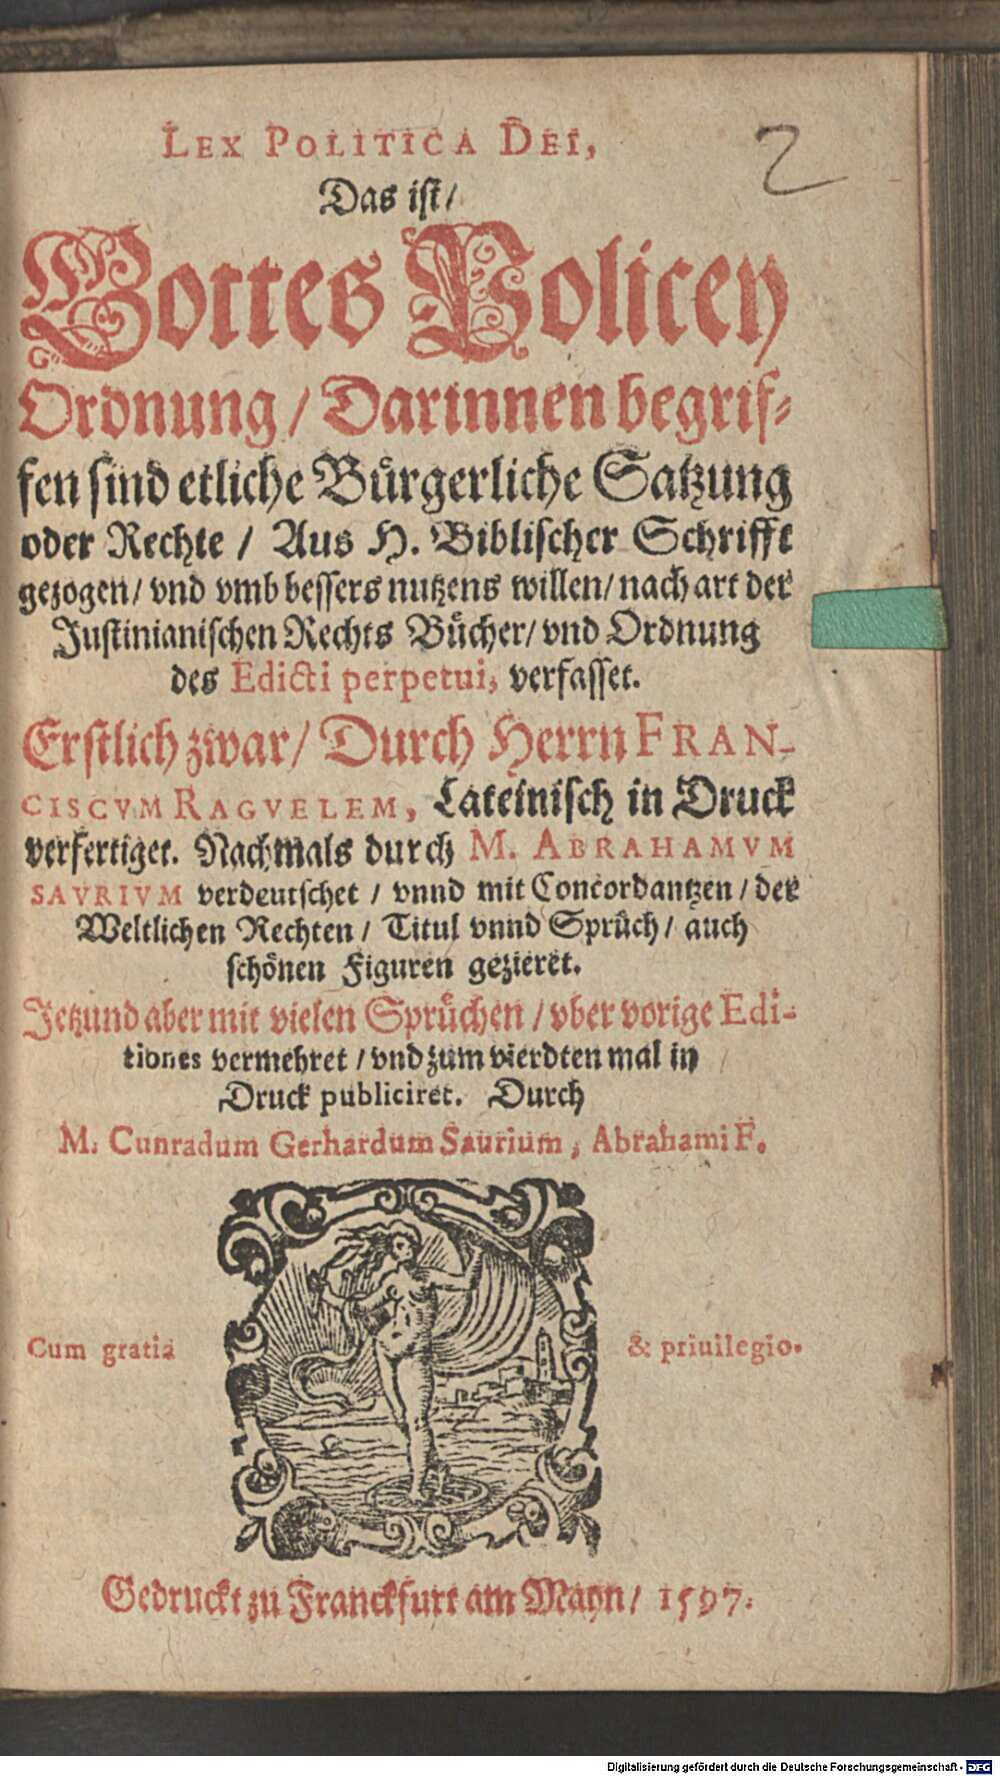 LEX POLITICA DEI,
2
Das ist/
Gottes Policey
Ordnung/ Darinnen begrif-
fen sind etliche Bürgerliche Satzung
oder Rechte / Aus H. Biblischer Schrifft
gezogen/ vnd vmb bessers nutzens willen/ nach art der
Justinianischen Rechts Bücher/ vnd Ordnung
des Edicti perpetui, verfasset.
Erstlich zwar/ Durch Herrn FRAN-
CISCVM RAGVELEM, Lateinisch in Druck
verfertiget. Nachmals durch M. ABRAHAMVM
SAVRIVM verdeutschet / vnnd mit Concordantzen / der
Weltlichen Rechten / Titul vnnd Sprüch / auch
schönen Figuren gezieret.
Jetzund aber mit vielen Sprüchen / vber vorige Edi-
tiones vermehret / vnd zum vierdten mal in
Druck publiciret. Durch
M. Cunradum Gerhardum Saurium, Abrahami F.
Cum gratia & priuilegio.
Gedruckt zu Franckfurt am Mayn/ 1597.
Digitalisierung gefördert durch die Deutsche Forschungsgemeinschaft - DFG